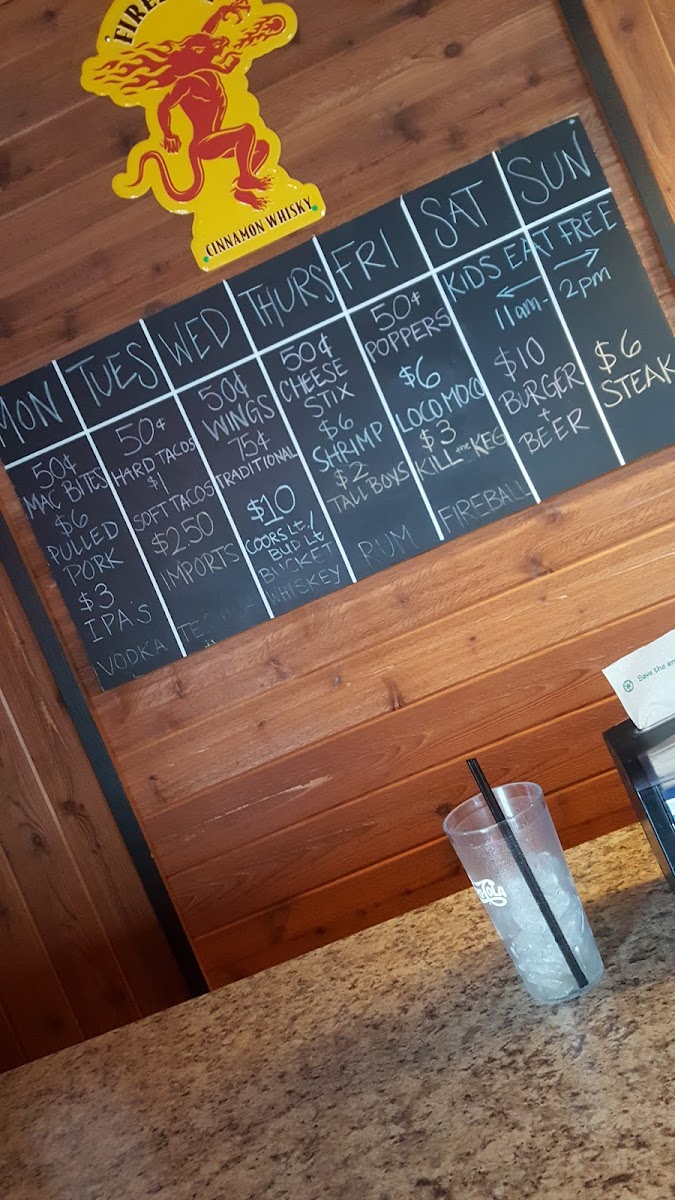 FIRE
CINNAMON WHISKY
MON
50¢
MAC BITES
$6
PULLED
PORK
$3
IPA'S
VODKA
TUES
50¢
HARD TACOS
$1
SOFT TACOS
$2.50
IMPORTS
WED
50¢
WINGS
75¢
TRADITIONAL
$10
COORS Lt./
BUD Lt
BUCKET
WHISKEY
THURS
50¢
CHEESE
STIX
$6
SHRIMP
$2
TALL BOYS
RUM
FRI
50¢
POPPERS
$6
LOCO MOCO
$3
KILL the KEG
FIREBALL
SAT
SUN
KIDS EAT FREE
11am - 2pm
$10
BURGER
+
BEER
$6
STEAK
Save the
COLA